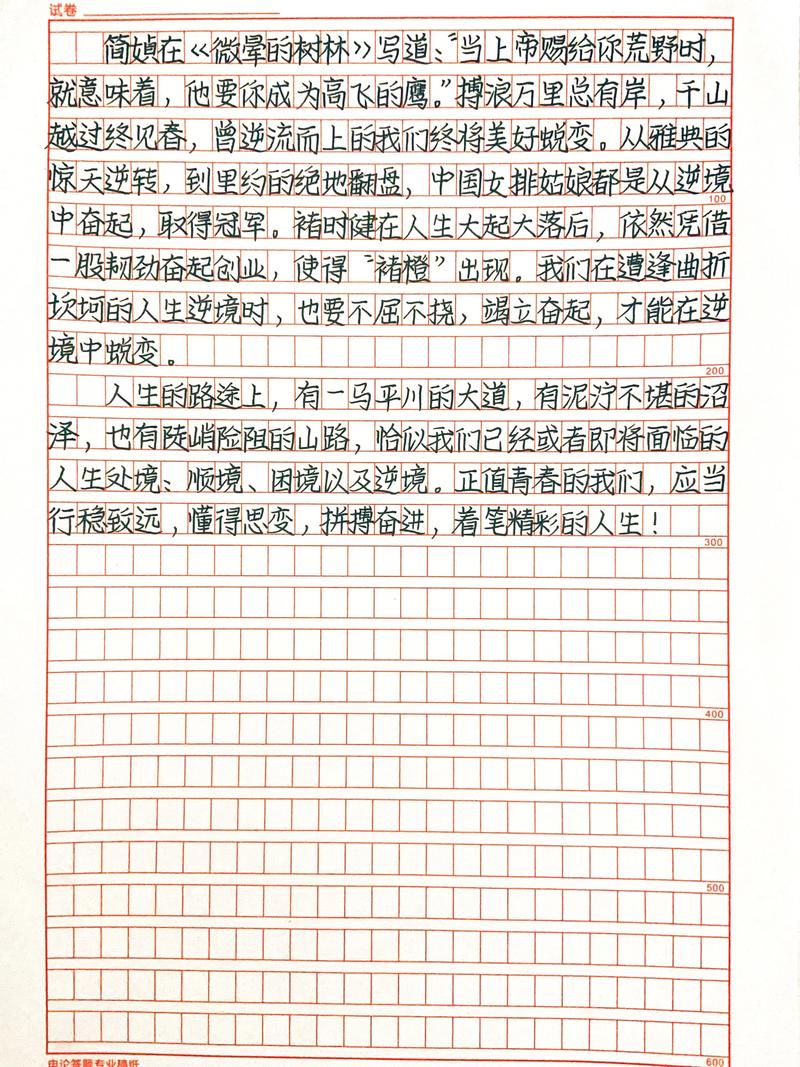 试卷
简媜在《微晕的树林》写道:“当上帝赐给你荒野时,
就意味着,他要你成为高飞的鹰。”搏浪万里总有岸,千山
越过终见春,曾逆流而上的我们终将美好蜕变。从雅典的
惊天逆转,到里约的绝地翻盘,中国女排姑娘都是从逆境
100
中奋起,取得冠军。褚时健在人生大起大落后,依然凭借
一股韧劲奋起创业,使得“褚橙”出现。我们在遭逢曲折
坎坷的人生逆境时,也要不屈不挠,竭立奋起,才能在逆
境中蜕变。
200
人生的路途上,有一马平川的大道,有泥泞不堪的沼
泽,也有陡峭险阻的山路,恰似我们已经或者即将面临的
人生处境:顺境、困境以及逆境。正值青春的我们,应当
行稳致远,懂得思变,拼搏奋进,着笔精彩的人生!
300
400
500
600
申论答题专业稿纸